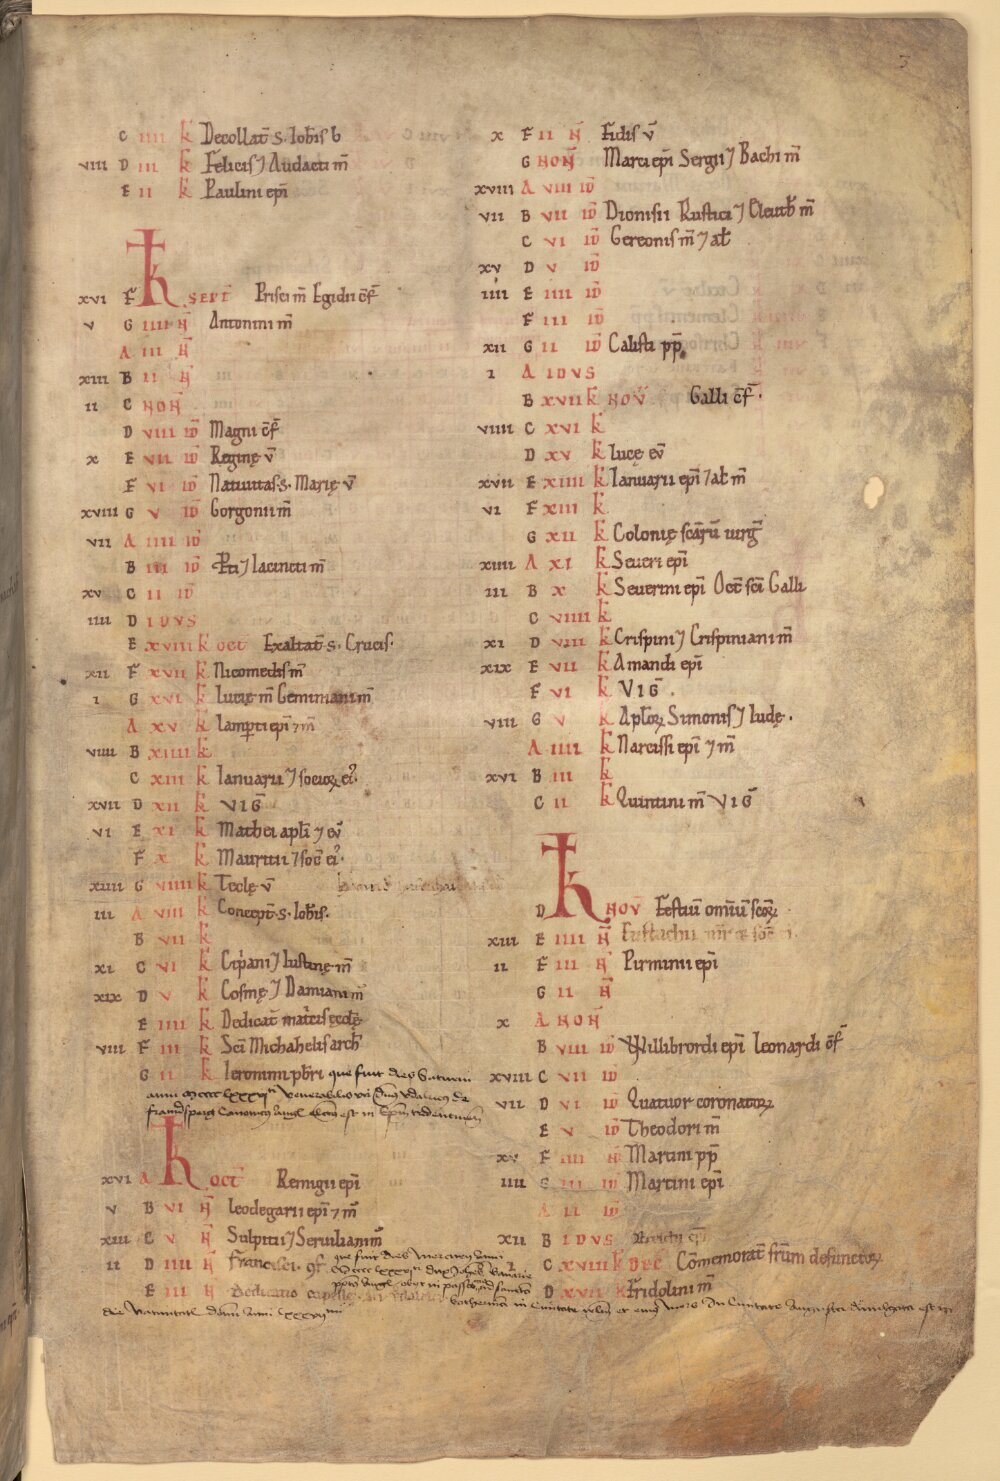 3
C IIII k Decollat̄ s. Ioh̄is b
VIII D III k Felicis ⁊ Audacti m̄
E II k Paulini ep̄i
XVI F k SEPT̄ Prisci m̄ Egidii c̄f
V G IIII N̄ Antonini m̄
A III N̄
XIII B II N̄
II C NON̄
D VIII ID̄ Magni c̄f
X E VII ID̄ Reginę v̄
F VI ID̄ Natiuitas s. Marię v̄
XVIII G V ID̄ Gorgonii m̄
VII A IIII ID̄
B III ID̄ P̄ti ⁊ Iacincti m̄
XV C II ID̄
IIII D IDVS
E XVIII k OCT Exaltat̄ s. Crucis.
XII F XVII k Nicomedis m̄
I G XVI k Lucię m̄ Geminiani m̄
A XV k Lamperti ep̄i ⁊ m̄
VIIII B XIIII k
C XIII k Ianuarii ⁊ socioꝝ ei᾿.
XVII D XII k VIḠ
VI E XI k Mathei apl̄i ⁊ ev̄
F X k Mauritii ⁊ soc̄ ei᾿.
XIIII G VIIII k Teclę v̄
III A VIII k Concept̄ s. Ioh̄is.
B VII k
XI C VI k Cip̄ani ⁊ Iustinę m̄
XIX D V k Cosmę ⁊ Damiani m̄
E IIII k Dedicat̄ matris ęccl̄ę
VIII F III k Sc̄i Michahelis arch̄
G II k Ieronimi pb̄ri que fuit dies Saturni
XVI A k OCT̄ Remigii ep̄i
V B VI N̄ Leodegarii ep̄i ⁊ m̄
XIII C V N̄ Sulpitii ⁊ Seruiliani m̄
II D IIII N̄ Francisci cf̄ que fuit dies Mercurij anni
E III N̄ Dedicatio capelle
X F II N̄ Fidis v̄
G NON̄ Marci ep̄i Sergii ⁊ Bachi m̄
XVIII A VIII ID̄
VII B VII ID̄ Dionisii Rustici ⁊ Eleuth̄ m̄
C VI ID̄ Gereonis m̄ ⁊ al̄
XV D V ID̄
IIII E IIII ID̄
F III ID̄
XII G II ID̄ Calisti pp̄
I A IDVS
B XVII k NOV̄ Galli c̄f.
VIIII C XVI k
D XV k Lucę ev̄
XVII E XIIII k Ianuarii ep̄i ⁊ al̄ m̄
VI F XIII k
G XII k Colonię sc̄arū uirḡ
XIIII A XI k Seueri ep̄i
III B X k Seuerini ep̄i Oct̄ sc̄i Galli
C VIIII k
XI D VIII k Crispini ⁊ Crispiniani m̄
XIX E VII k Amandi ep̄i
F VI k VIḠ.
VIII G V k Apl̄oꝝ Simonis ⁊ Iudę.
A IIII k Narcissi ep̄i ⁊ m̄
XVI B III k
C II k Quintini m̄ VIḠ
D k NOV̄ Festiū omīu sc̄oꝝ
XIII E IIII N̄ Eustachii m̄r et soc̄ ei.
II F III N̄ Pirminii ep̄i
G II N̄
X A NON̄
B VIII ID̄ Willibrordi ep̄i Leonardi c̄f
XVIII C VII ID̄
VII D VI ID̄ Quatuor coronatoꝝ
E V ID̄ Theodori m̄
XV F IIII ID̄ Martini pp̄
IIII G III ID̄ Martini ep̄i
A II ID̄
XII B IDVS
I C XVIII k DEC Cōmemorat̄ fr̄um defunctoꝝ
D XVII k Fridolini m̄